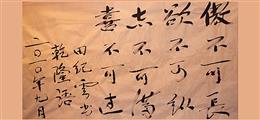 傲不可長
欲不可縱
志不可滿
喜不可过
田纪雲书
乾隆语
二〇一〇年九月